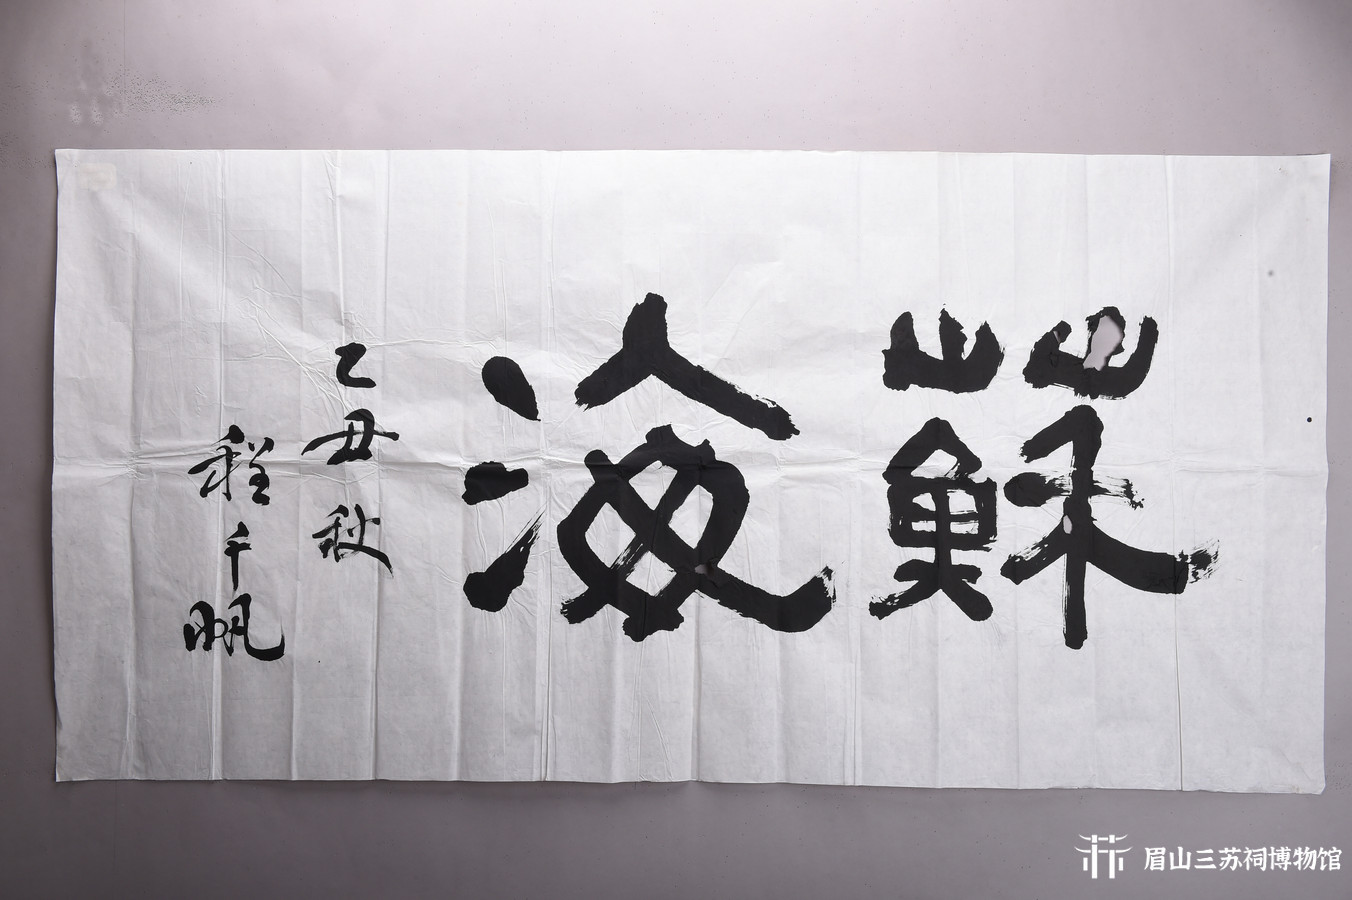 蘇海
乙丑秋
程千帆
眉山三苏祠博物馆